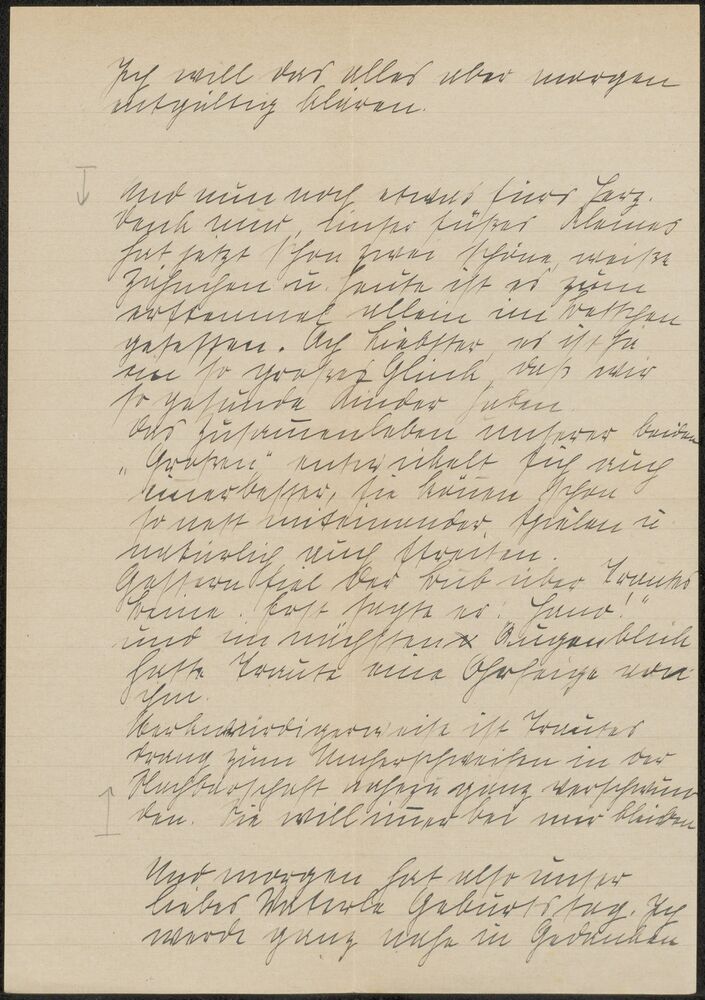 Ich will das alles aber morgen
entgültig klären.
Und nun noch etwas fürs Herz.
Denk nur, unser süßes Kleines
hat jetzt schon zwei schöne, weiße
Zähnchen u. heute ist es zum
erstenmal allein im Bettchen
gesessen. Ach Liebster, es ist ja
ein so großes Glück, daß wir
so gesunde Kinder haben.
Das Zusam̄enleben unserer beiden
„Großen" entwickelt sich auch
im̄er besser, sie kön̄en schon
so nett miteinander spielen u.
natürlich auch streiten.
Gestern fiel der Bub über Trautes
Beine. Erst sagte er:
und im nächsten Augenblick
hatte Traute eine Ohrfeige von
ihm.
Merkwürdigerweise ist Trautes
Drang zum Umherschweifen in der
Nachbarschaft nahezu ganz verschwun
den. Sie will im̄er bei mir bleiben
Und morgen hat also unser
liebes Vaterle Geburtstag. Ich
werde ganz nahe in Gedanken